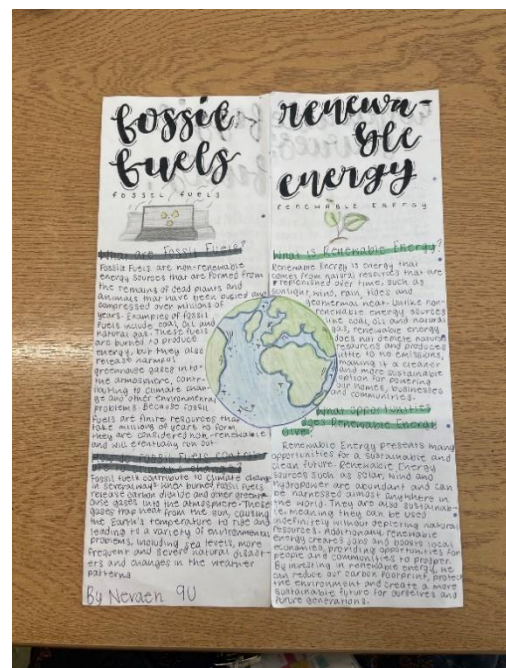 fossil
fuels
FOSSIL FUELS
What are Fossil Fuels?
Fossil Fuels are non-renewable
energy sources that are formed from
the remains of dead plants and
animals that have been buried and
compressed over millions of
years. Examples of fossil
fuels include coal, oil and
natural gas. These fuels
are burned to produce
energy, but they also
release harmful
greenhouse gases into
the atmosphere, contr-
ibuting to climate chan-
ge and other environmental
problems. Because fossil
fuels are finite resources that
take millions of years to form,
they are considered non-renewable
and will eventually run out.
Fossil Fuels
Fossil fuels contribute to climate change
in several ways. When burned fossil fuels
release carbon dioxide and other greenho-
use gases into the atmosphere. These
gases trap heat from the sun, causing
the Earth's temperature to rise and
leading to a variety of environmental
problems, including sea levels, more
frequent and severe natural disast-
ers and changes in the weather
patterns
By Nevaeh 9U
renewa-
ble
energy
RENEWABLE ENERGY
What is Renewable Energy?
Renewable Energy is energy that
comes from natural resources that are
replenished over time, such as
sunlight, wind, rain, tides and
geothermal heat. Unlike non-
renewable energy sources
like coal, oil and natural
gas, renewable energy
does not deplete natural
resources and produces
little to no emissions,
making it a cleaner
and more sustainable
option for powering
our homes, businesses
and communities.
What opportuniti-
es does Renewable Energy
Give?
Renewable Energy presents many
opportunities for a sustainable and
clean future. Renewable Energy
sources such as solar, wind and
hydropower are abundant and can
be harnessed almost anywhere in
the world. They are also sustainab-
le, meaning they can be used
indefinitely without depleting natural
resources. Additionally, renewable
energy creates jobs and boosts local
economies, providing opportunities for
people and communities to prosper.
By investing in renewable energy, we
can reduce our carbon footprint, protect
the environment and create a more
sustainable future for ourselves and
future generations.